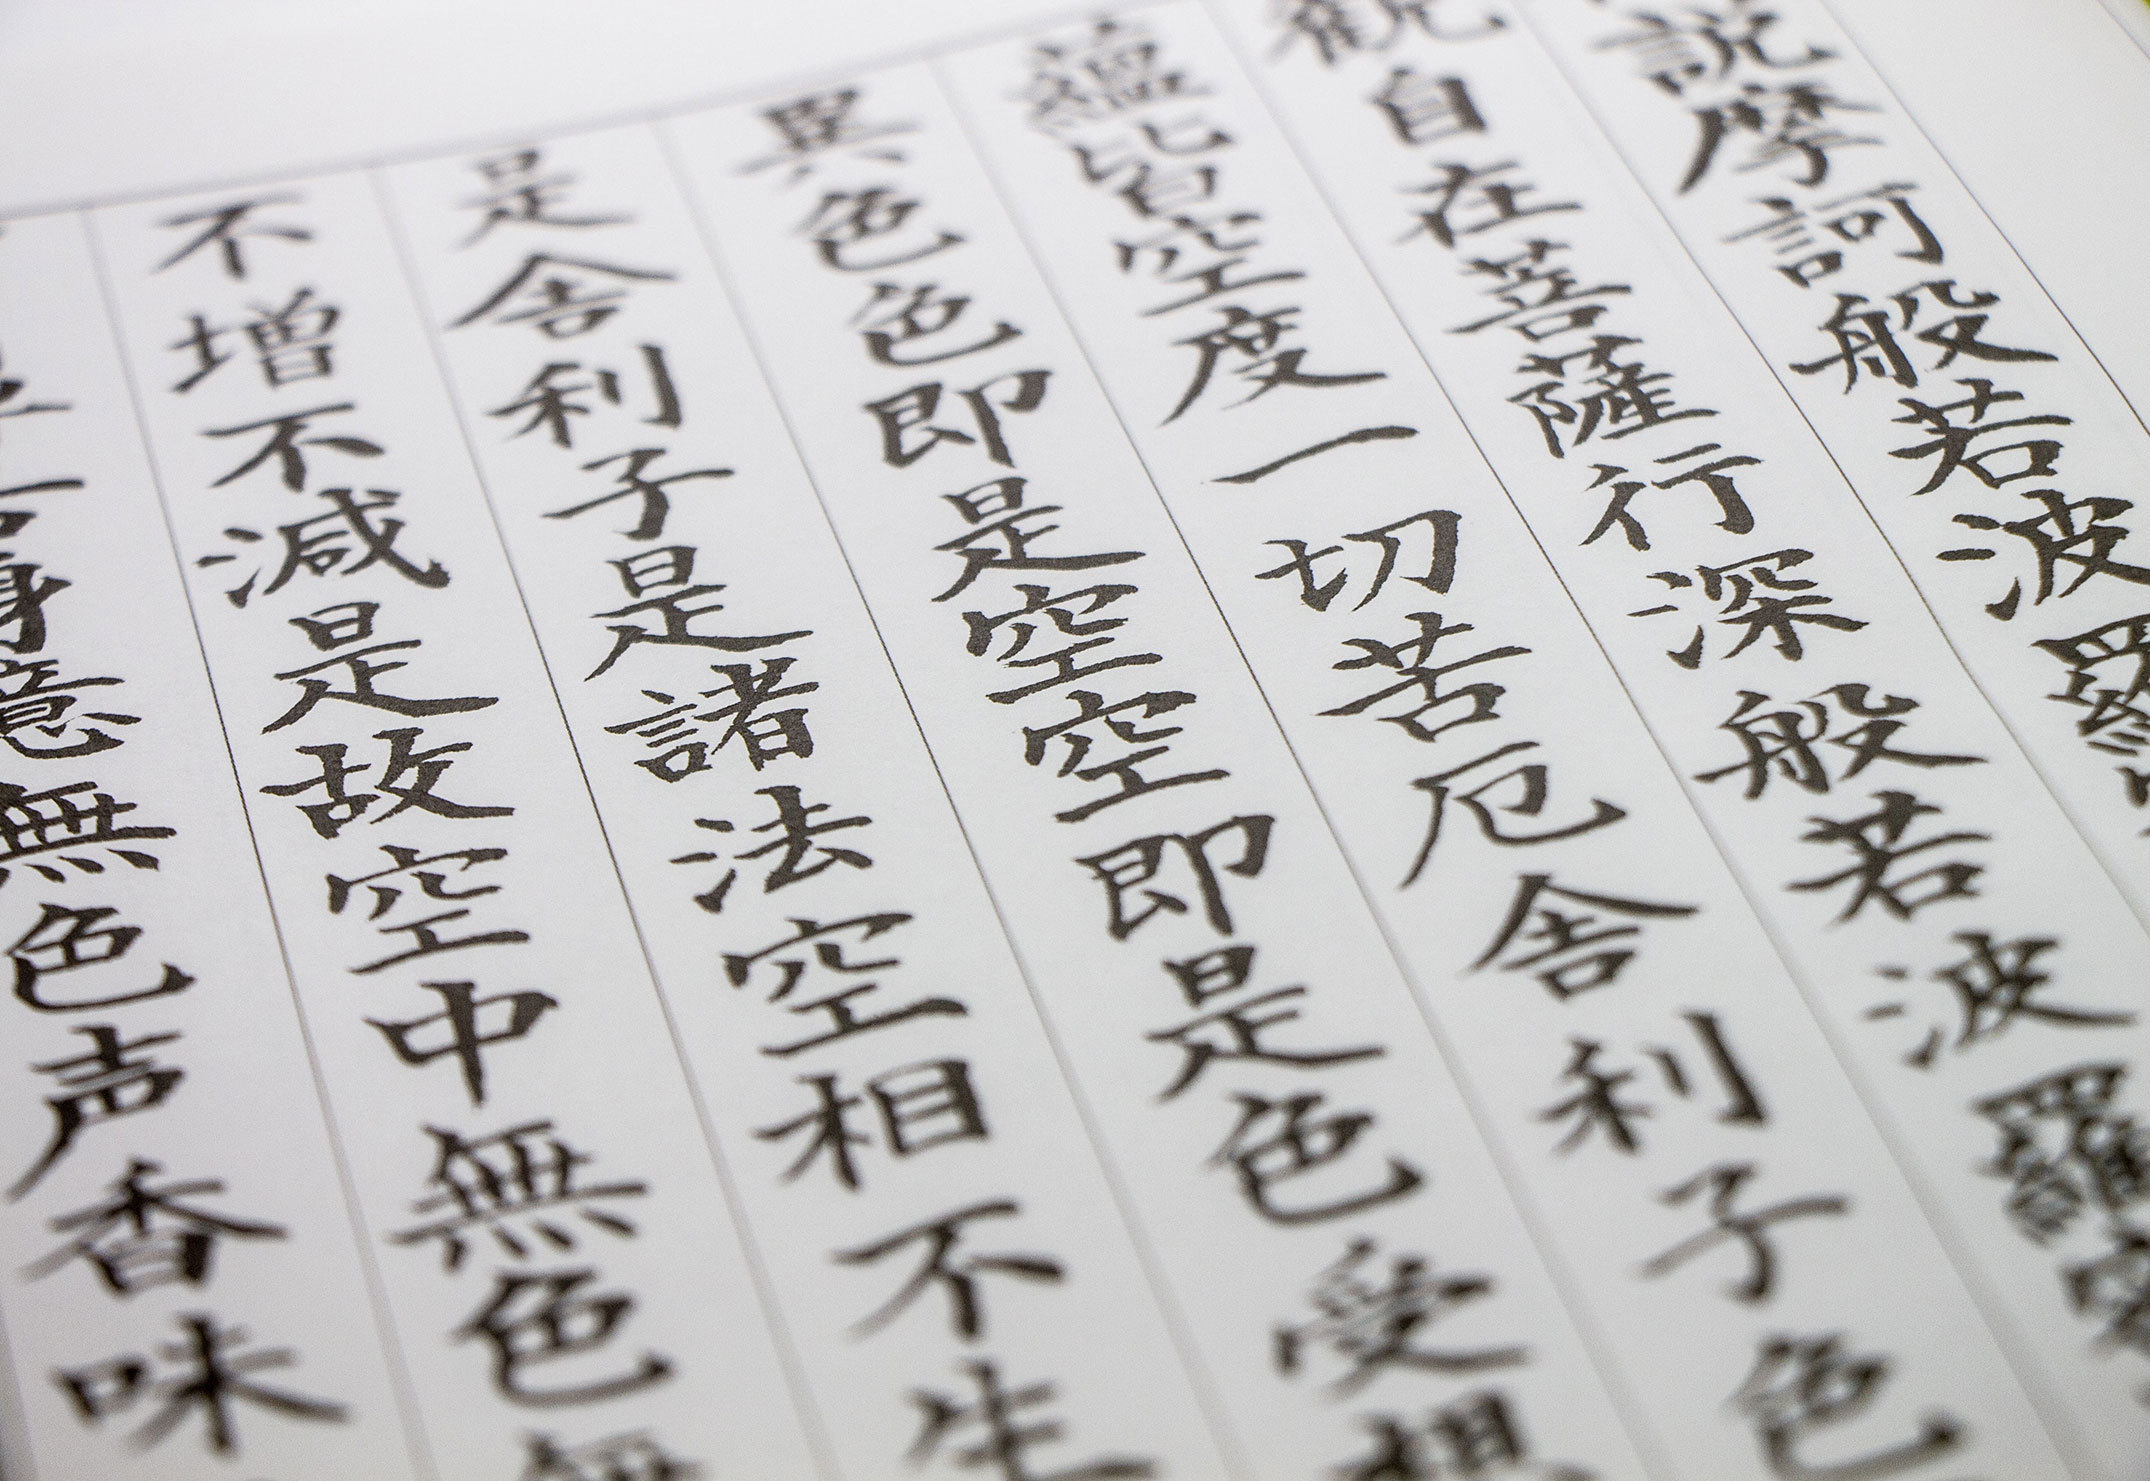 説摩訶般若波羅
観自在菩薩行深般若波羅蜜
蘊皆空度一切苦厄舎利子色
異色色即是空空即是色受想
是舎利子是諸法空相不生
不増不減是故空中無色無
舌身意無色声香味